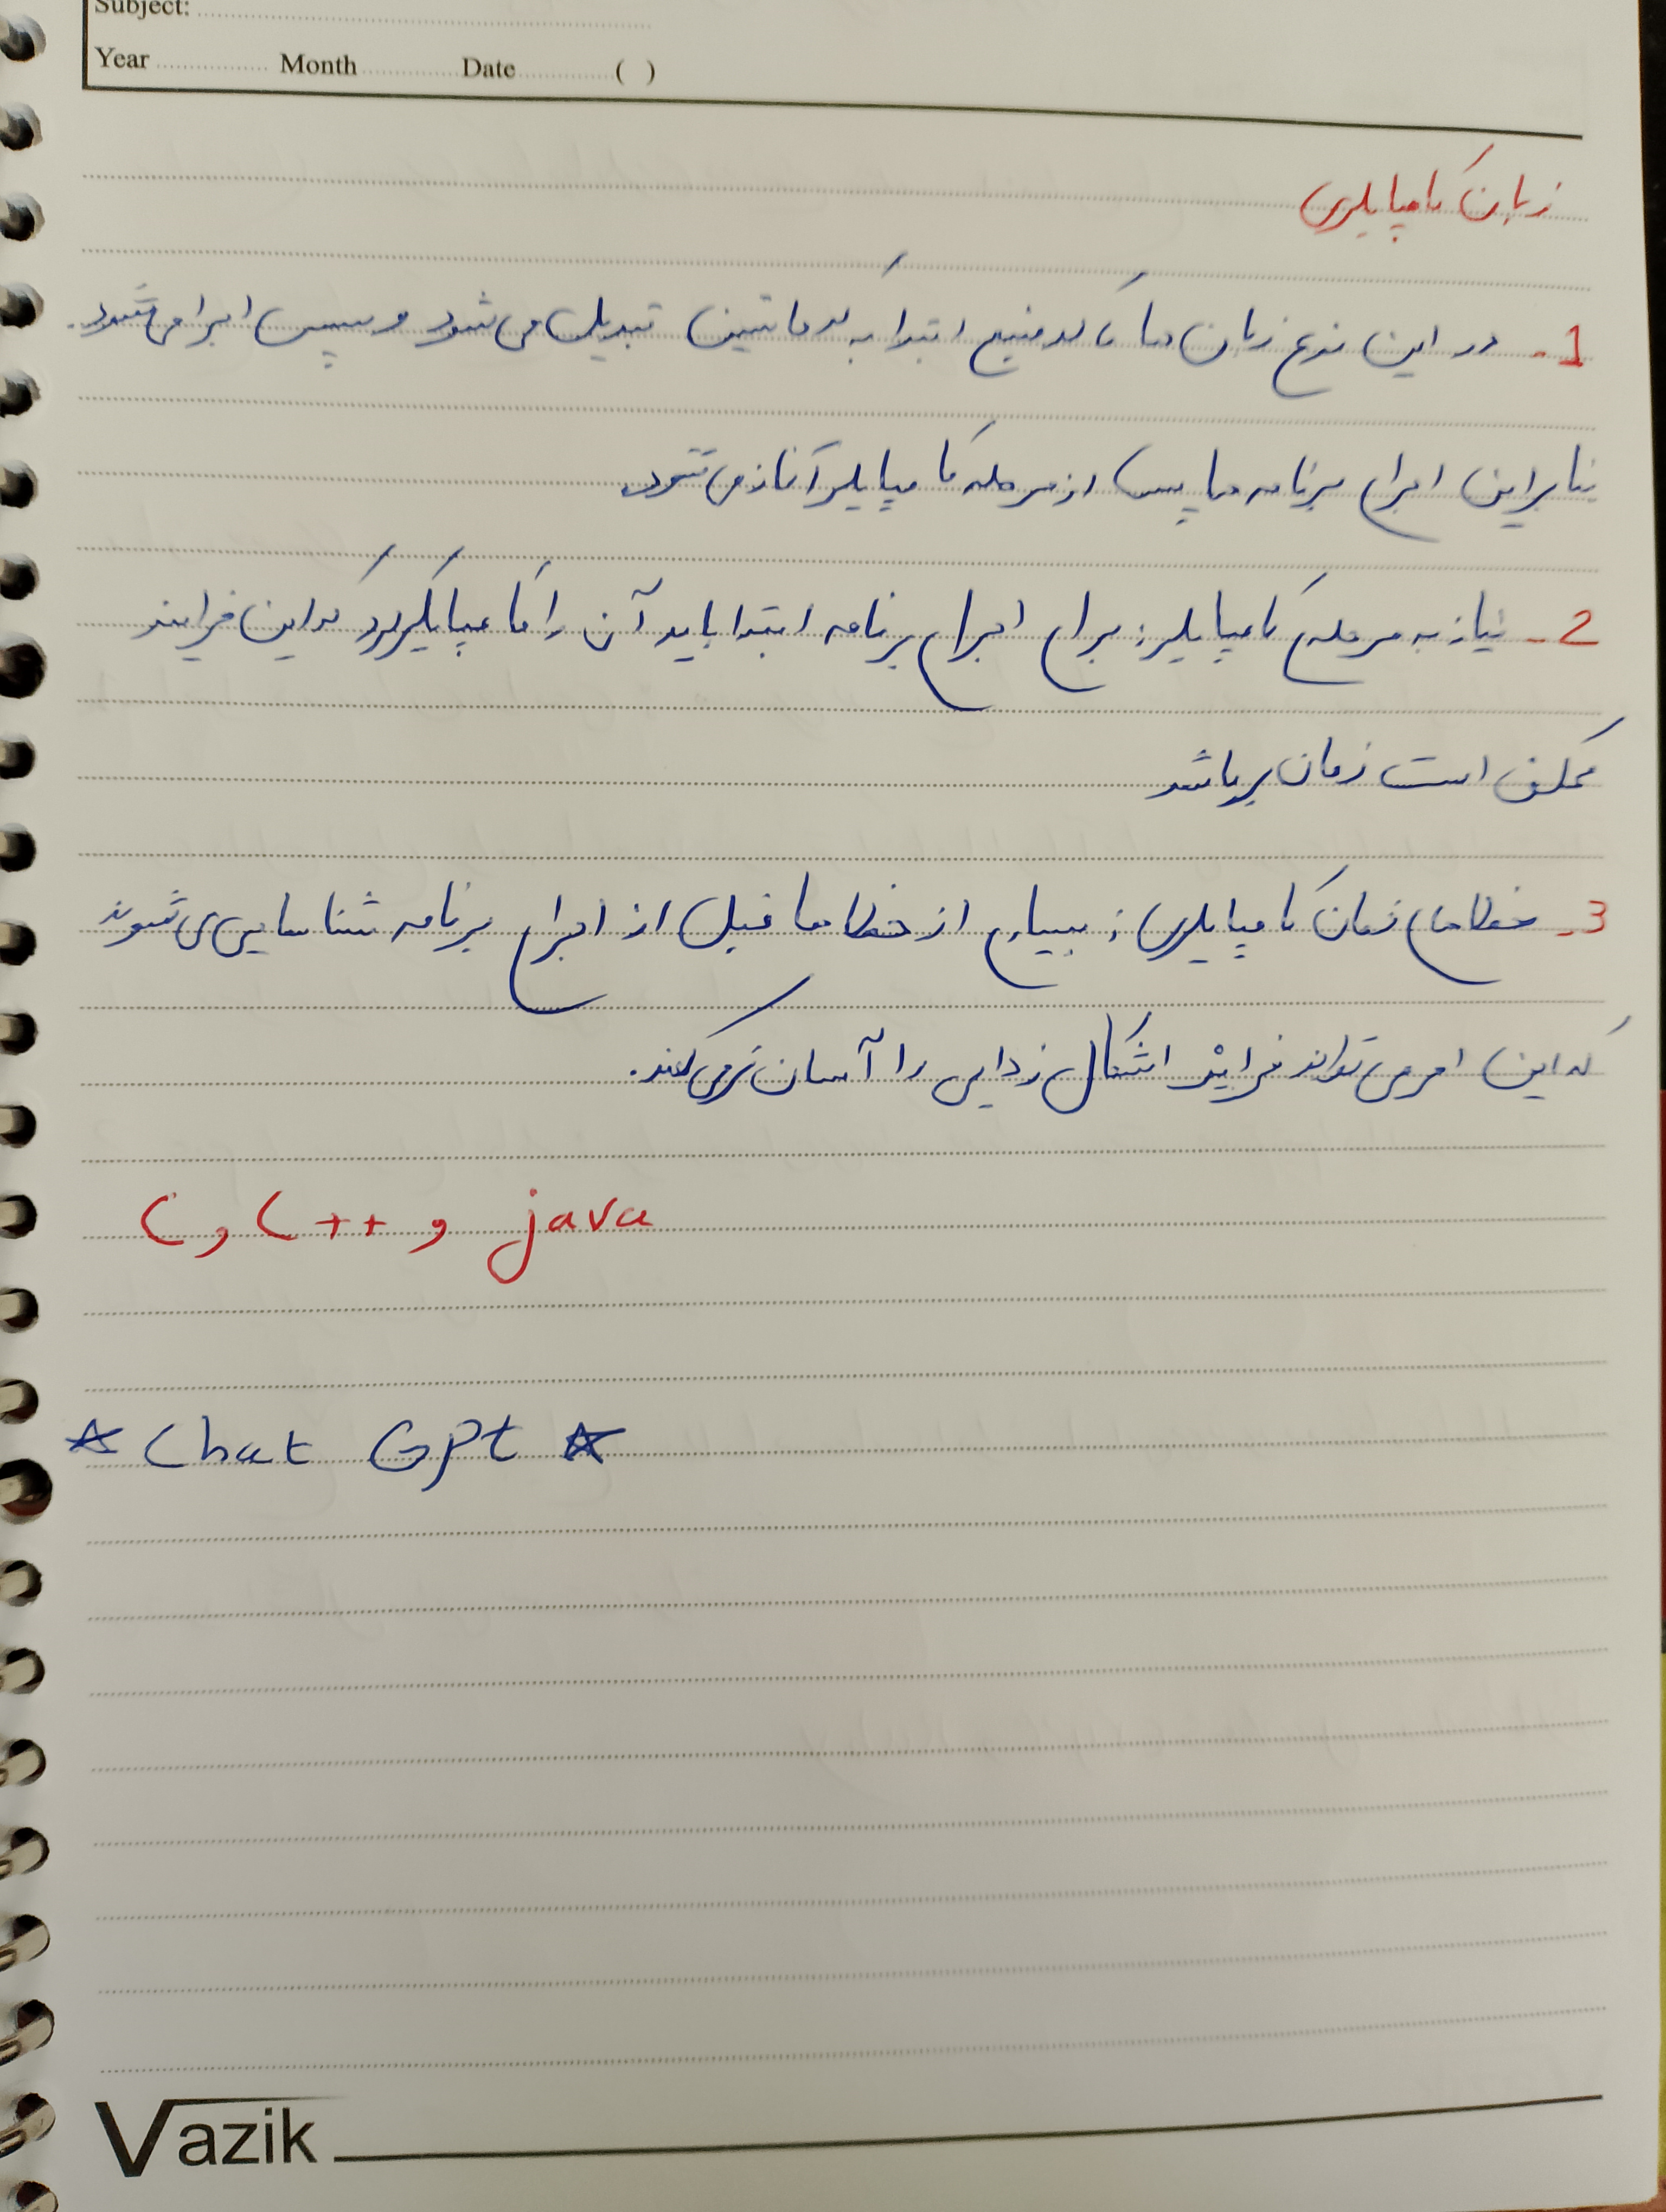 Subject:
Year Month Date ( )
زبان کامپایلری
1- در این نوع زبان ها کد منبع ابتدا به کد ماشین تبدیل می شود و سپس اجرا می شود.
بنابراین اجرای برنامه ها پس از مرحله کامپایلر آغاز می شود
2- نیاز به مرحله ی کامپایلر: برای اجرای برنامه ابتدا باید آن را کامپایلر کرد که این فرایند
ممکن است زمان بر باشد
3- خطاهای زمان کامپایلری: بسیاری از خطاها قبل از اجرای برنامه شناسایی می شوند
که این امر می تواند فرایند اشکال زدایی را آسان تر می کند.
C, C++, java
☆ Chat GPt ☆
Vazik